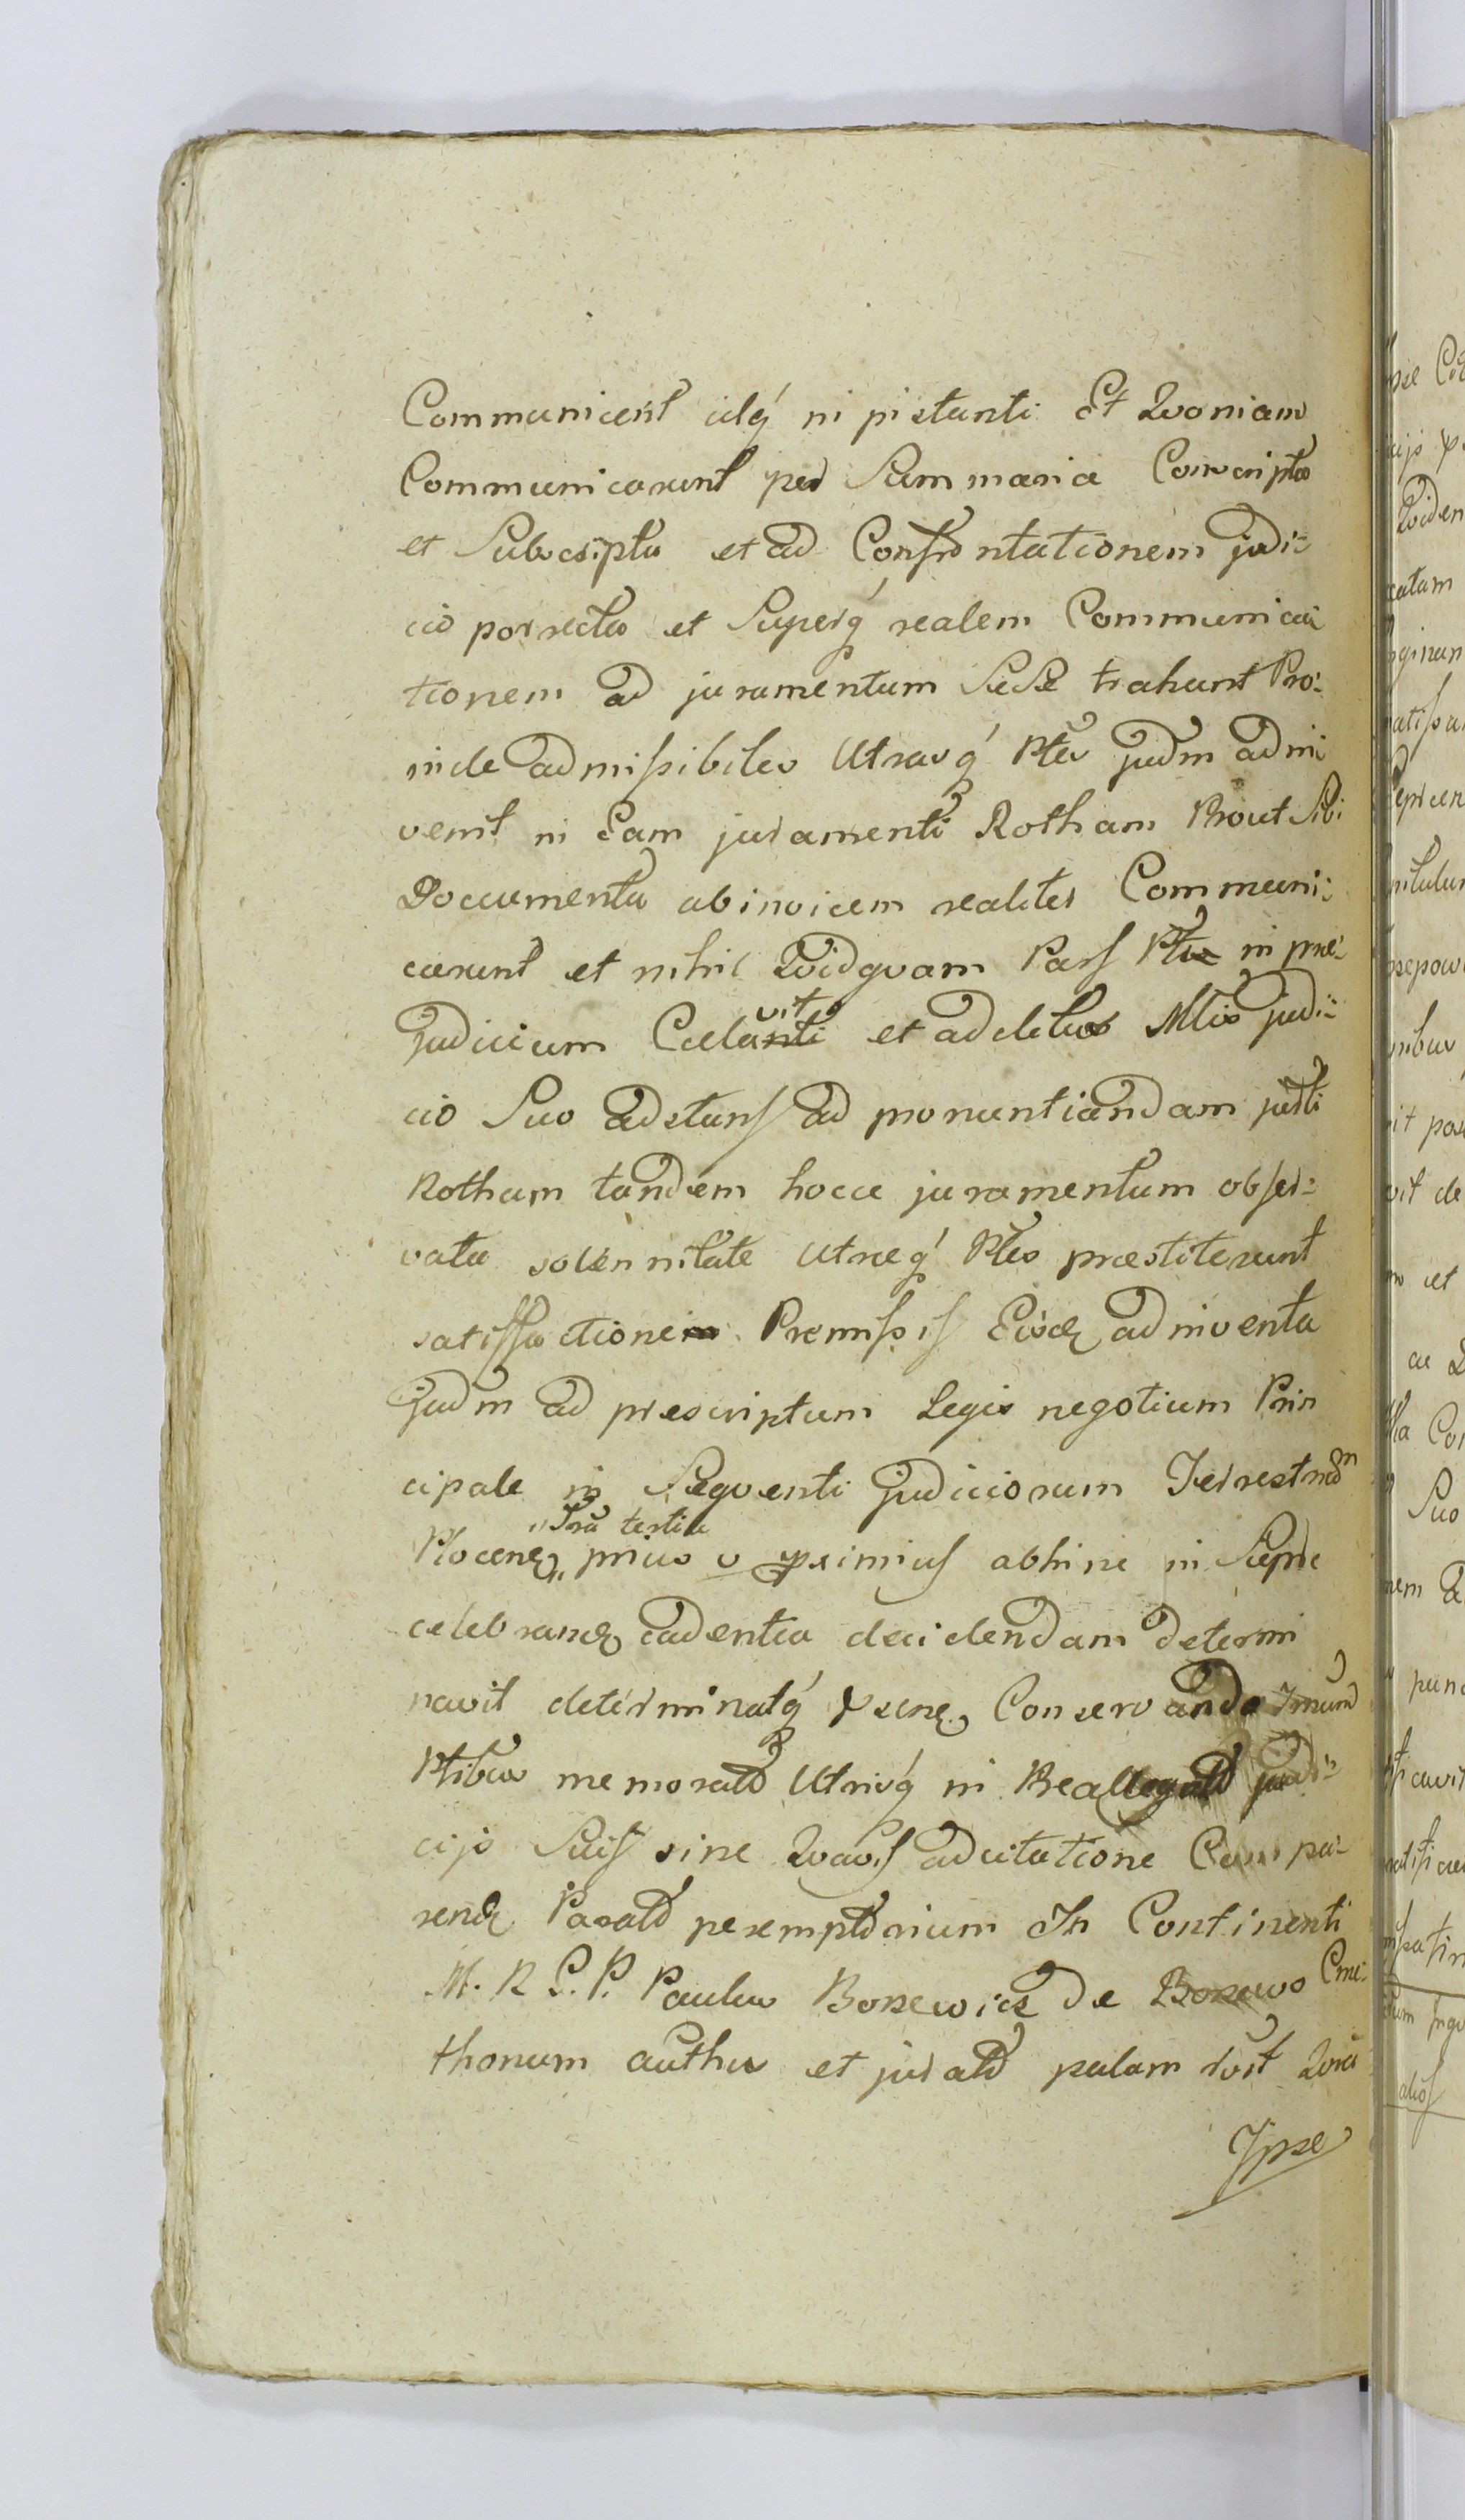 Communicent idq́ in instanti Et Quoniam
Communicarunt per Summaria Conscripta
et Subscripta et ad Confrontationem judi-
cio porrecta et Superq́ realem Communica-
tionem ad juramentum Sese trahunt Pro-
inde admissibiles Utrasq́ Ptes Judm ad in
venit in Eam juramenti Rotham Prout Sibi
Documenta abinvicem realiter Communi-
carunt et nihil Quidquam Pars Pti in præ-
Judicium Celavit et ad latus Mtis judi-
cio Suo adstans ad pronuntiandam justi
Rotham tandem hocce juramentum obser-
vata solennitate utræq́ Ptes præstiterunt
satisfactione Premissis Eisdq adinventa
Judm ad prescriptum Legis negotium Prin
cipale in Sequenti Judiciorum Terrestrium
Plocens „Tra tertia„ prius v proximius abhinc in Sepne
celebrandq cadentia decidendam determi
navit determinatq́ Conservando Tmum
Ptibus memoratis Utrisq́ in Preallegatis judi-
cijs Suis sine Quavis adcitatione Compa-
rendq Paratis peremptorium In Continenti
M. R P. P. Paulus Borzewicz De Borzewo Cme-
thonum autha et juratus palam rdt Qvia
Ipse